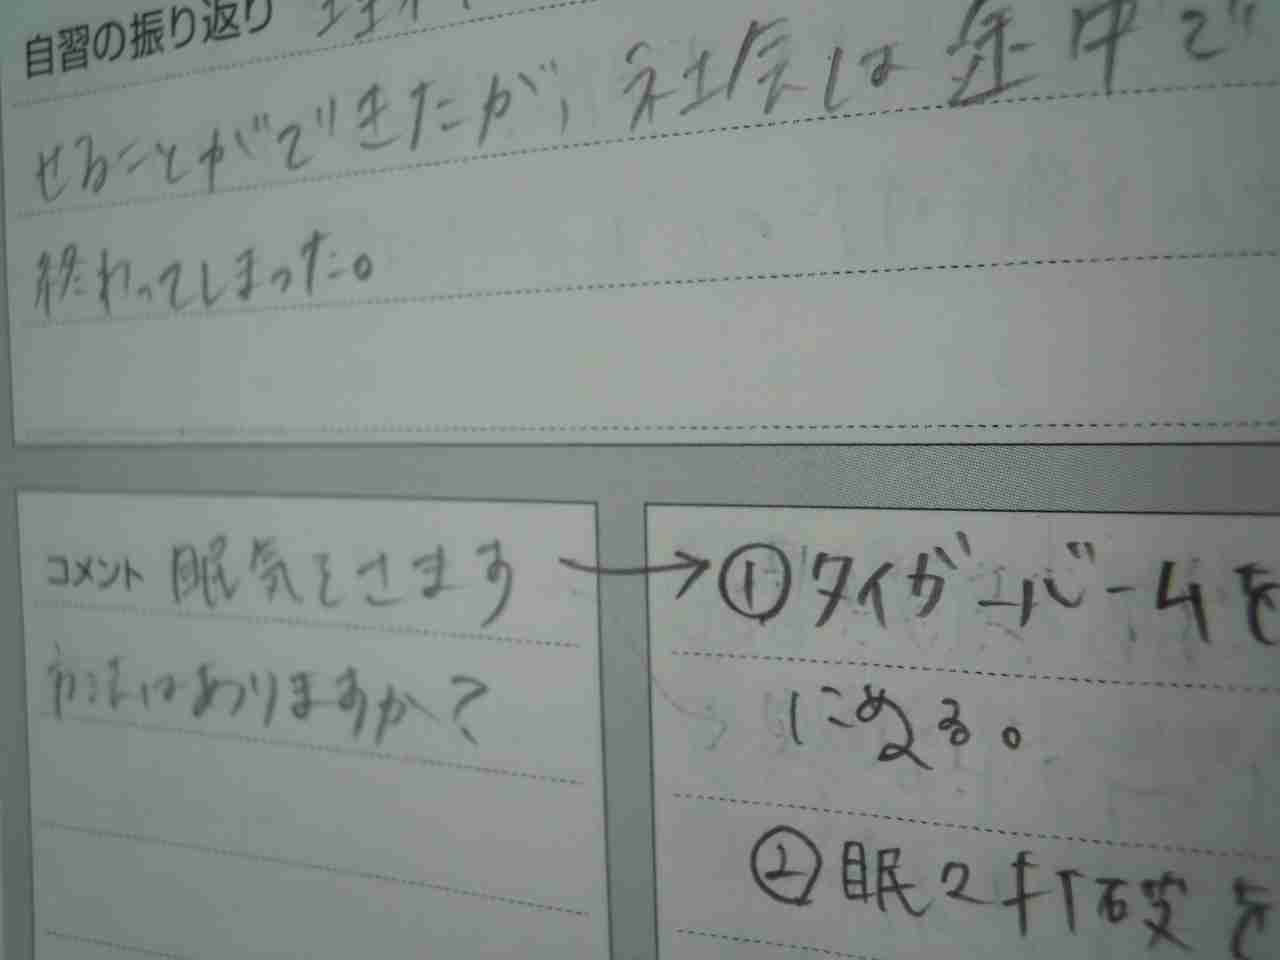 自習の振り返り
せることができたが、社会は途中で
終わってしまった。
コメント 眠気をさます
方法はありますか?
→①タイガーバームを
にぬる。
②眠々打破を